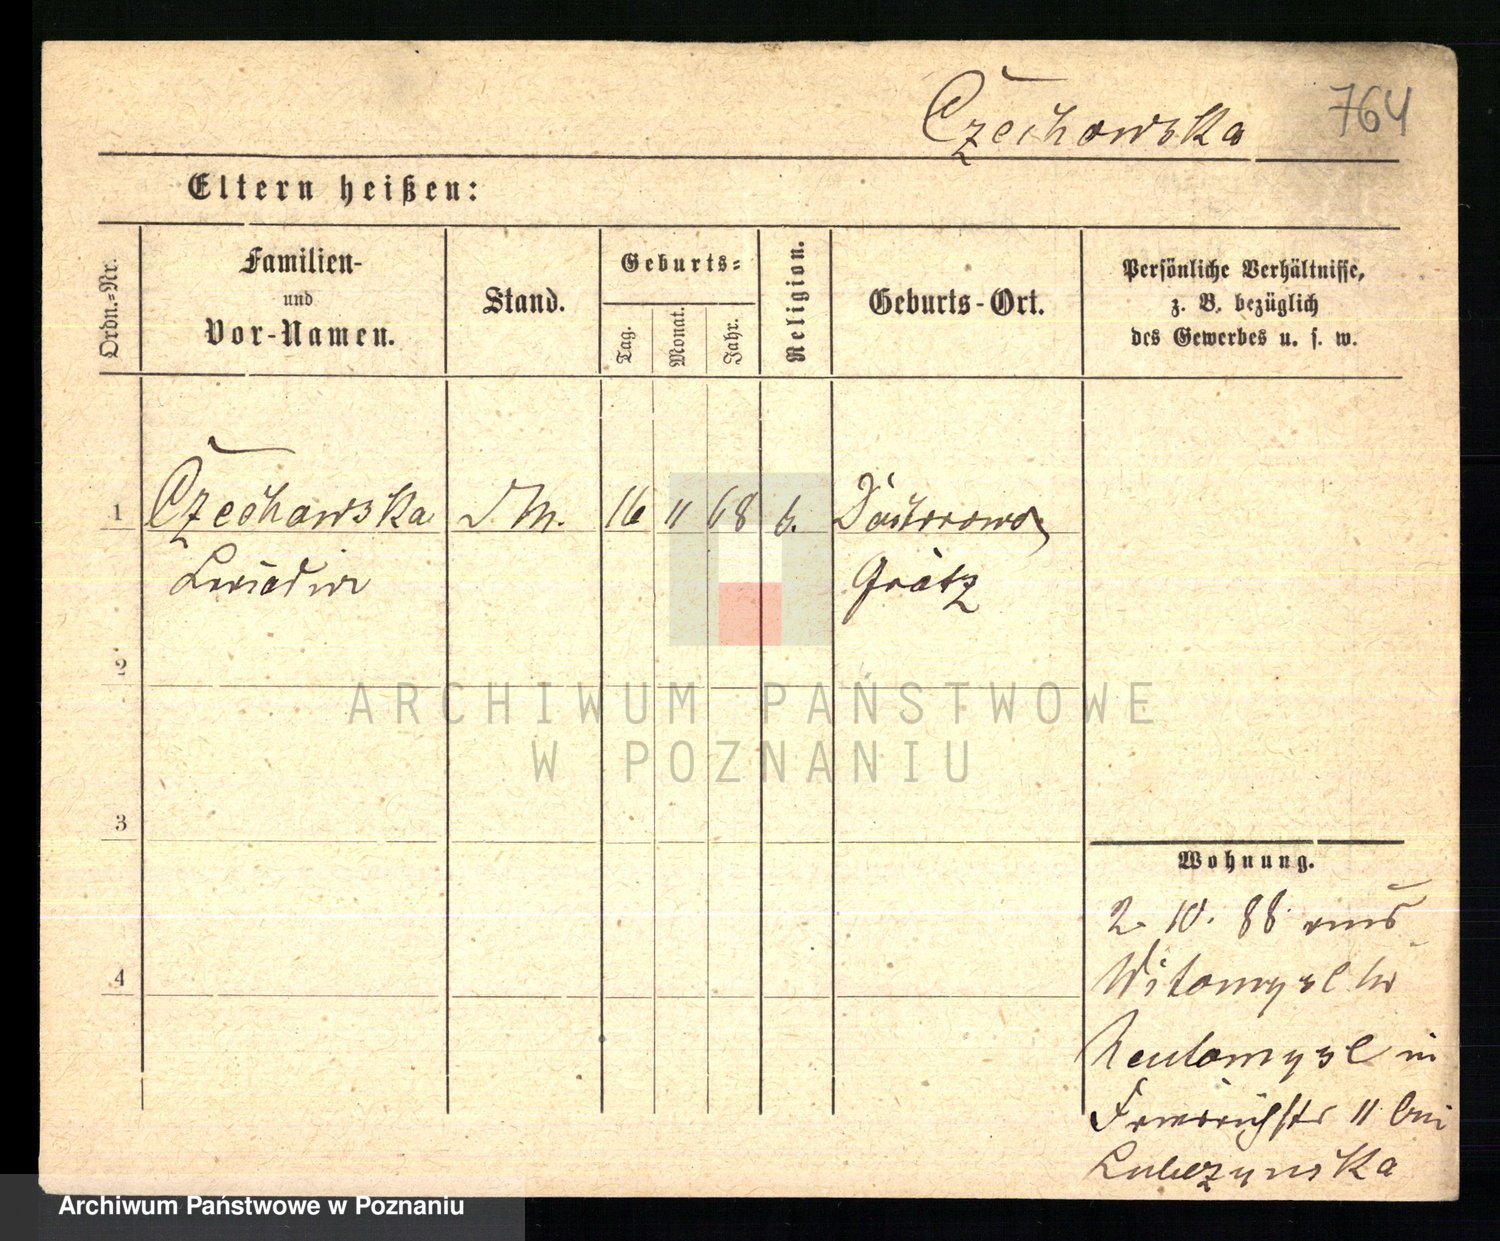 Czechowska 764
Eltern heißen:
Ordn.=Nr.
Familien-
und
Vor-Namen.
Stand.
Geburts=
Tag.
Monat.
Jahr.
Religion.
Geburts-Ort.
Persönliche Verhältnisse,
z. B. bezüglich
des Gewerbes u. s. w.
1 Czechowska 16 11 68
Grätz
2
ARCHIWUM PAŃSTWOWE
W POZNANIU
3
4
Wohnung.
2. 10. 88 aus
Witomysl
Neutomysl in
Friedrichstr 11 bei
Archiwum Państwowe w Poznaniu